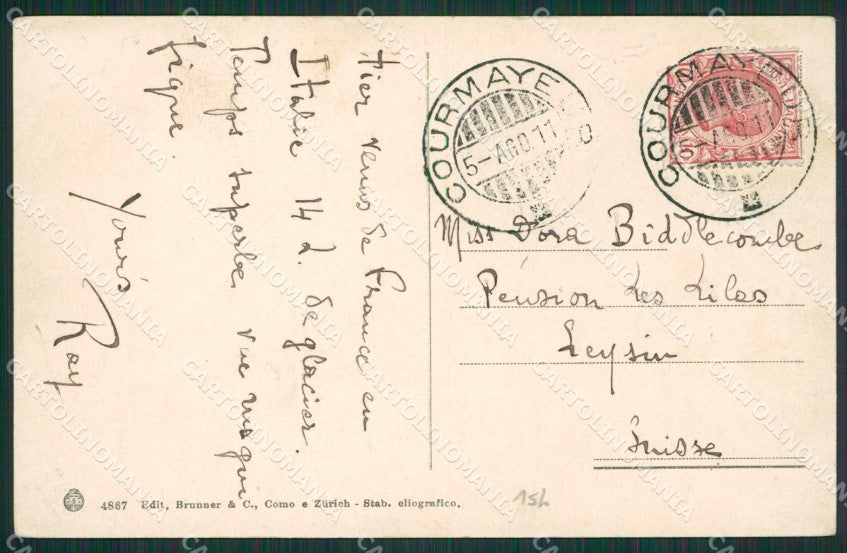 Hier venus de France en
Italie 14 h. de glacier.
Temps superbe vue magni
fique.
Yours
Ray
COURMAYE
5-AGO 11
COURMAYEUR
5-AGO 11
Miss Dora Biddlecombe
Pension Les Lilas
Leysin
Suisse
4867 Edit. Brunner & C., Como e Zürich - Stab. eliografico.
15h
CARTOLINOMANIA